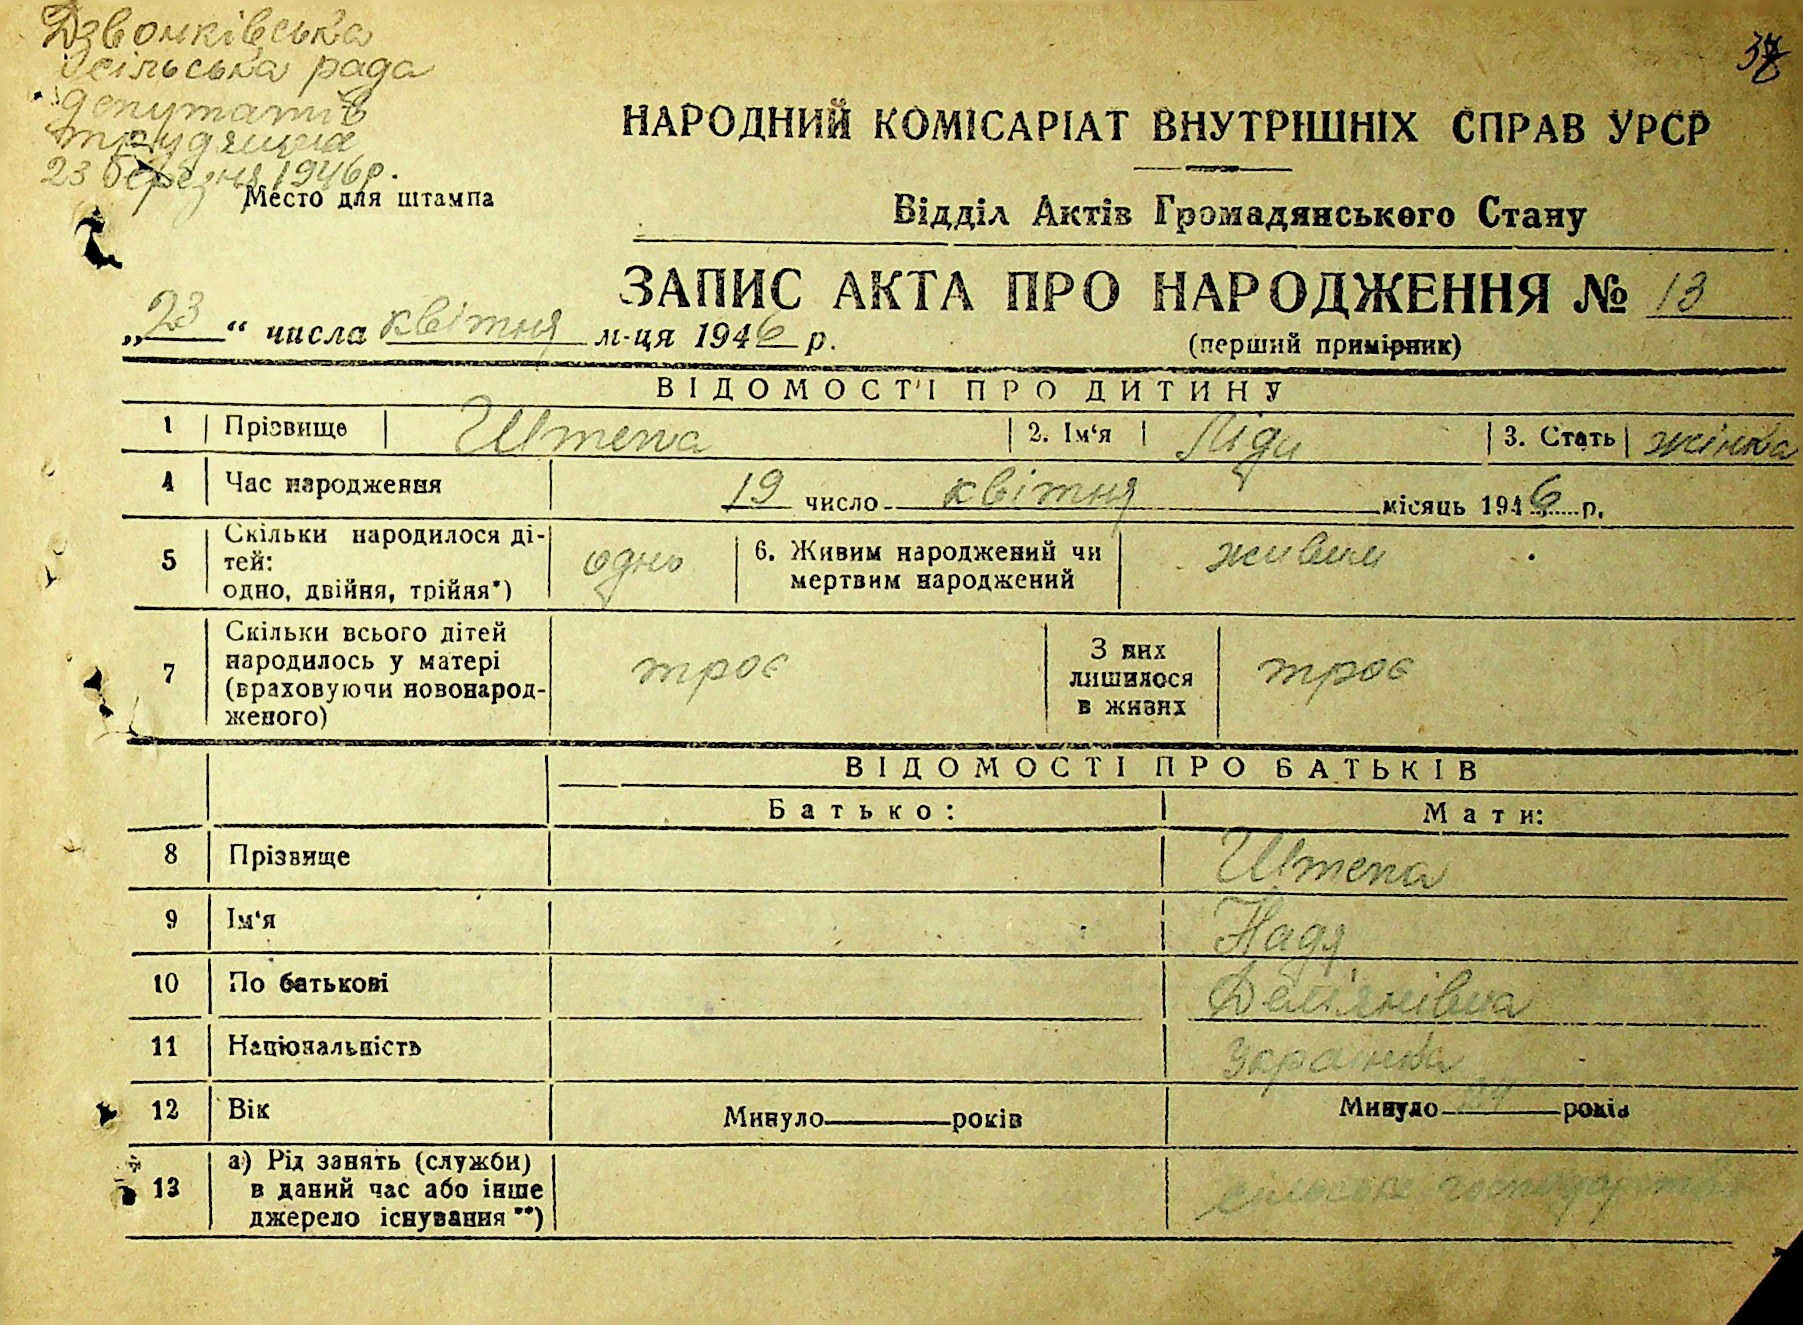 Дзвонківська
сільська рада
депутатів
трудящих
23 березня 1946 р.
Место для штампа
НАРОДНИЙ КОМІСАРІАТ ВНУТРІШНІХ СПРАВ УРСР
Відділ Актів Громадянського Стану
ЗАПИС АКТА ПРО НАРОДЖЕННЯ № 13
„23“ числа квітня м-ця 1946 р.
(перший примірник)
ВІДОМОСТІ ПРО ДИТИНУ
1 Прізвище Штепа 2. Ім‘я Ліда 3. Стать жінка
4 Час народження 19 число квітня місяць 1946 р.
5 Скільки народилося ді-
тей:
одно, двійня, трійня*) одно
6. Живим народжений чи
мертвим народжений живим
7 Скільки всього дітей
народилось у матері
(враховуючи новонарод-
женого) троє
З них
лишилося
в живих троє
ВІДОМОСТІ ПРО БАТЬКІВ
Батько: Мати:
8 Прізвище Штепа
9 Ім‘я Надя
10 По батькові Дем'янівна
11 Національність
12 Вік Минуло років Минуло років
13 а) Рід занять (служби)
в даний час або інше
джерело існування **) сільське господарство